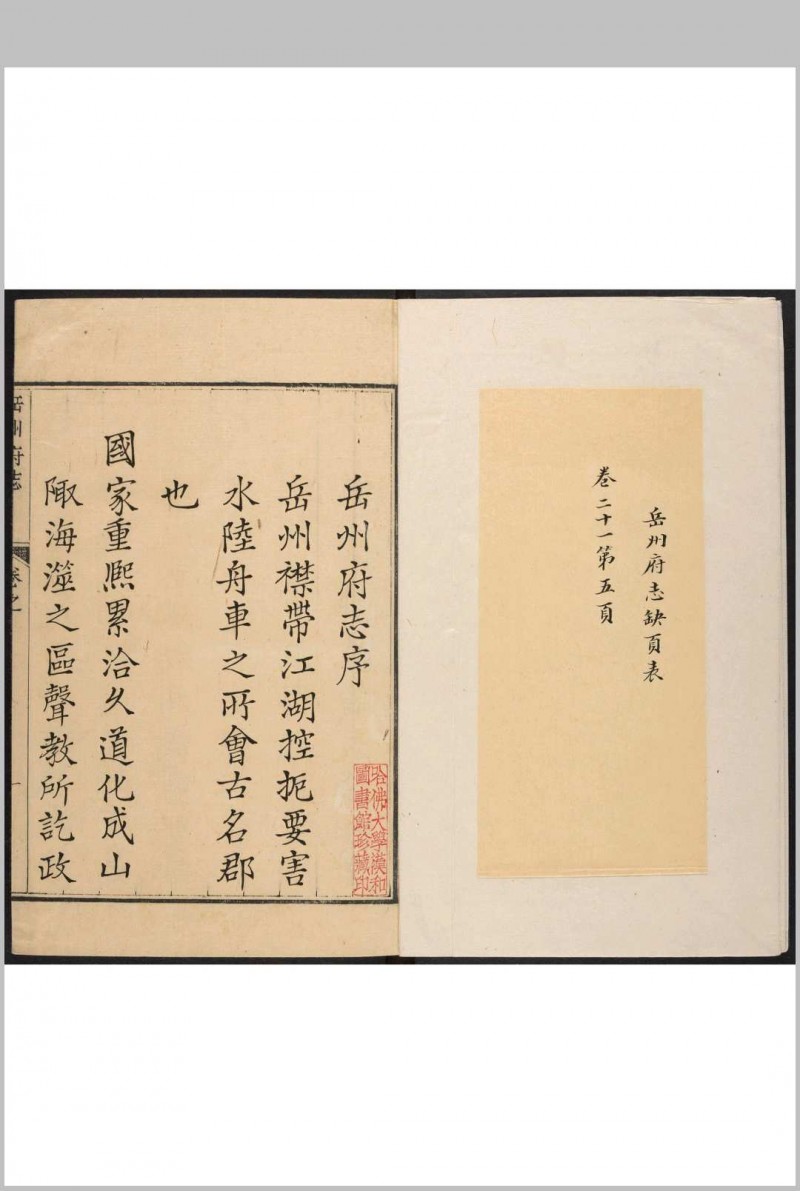 岳州府志缺頁表
卷二十一第五頁
岳州府志序
岳州襟帶江湖控扼要害
水陸舟車之所會古名郡
也
國家重熙累洽久道化成山
陬海澨之區聲教所訖政
哈佛大學漢和
圖書館珍藏印
岳州府志
卷之一